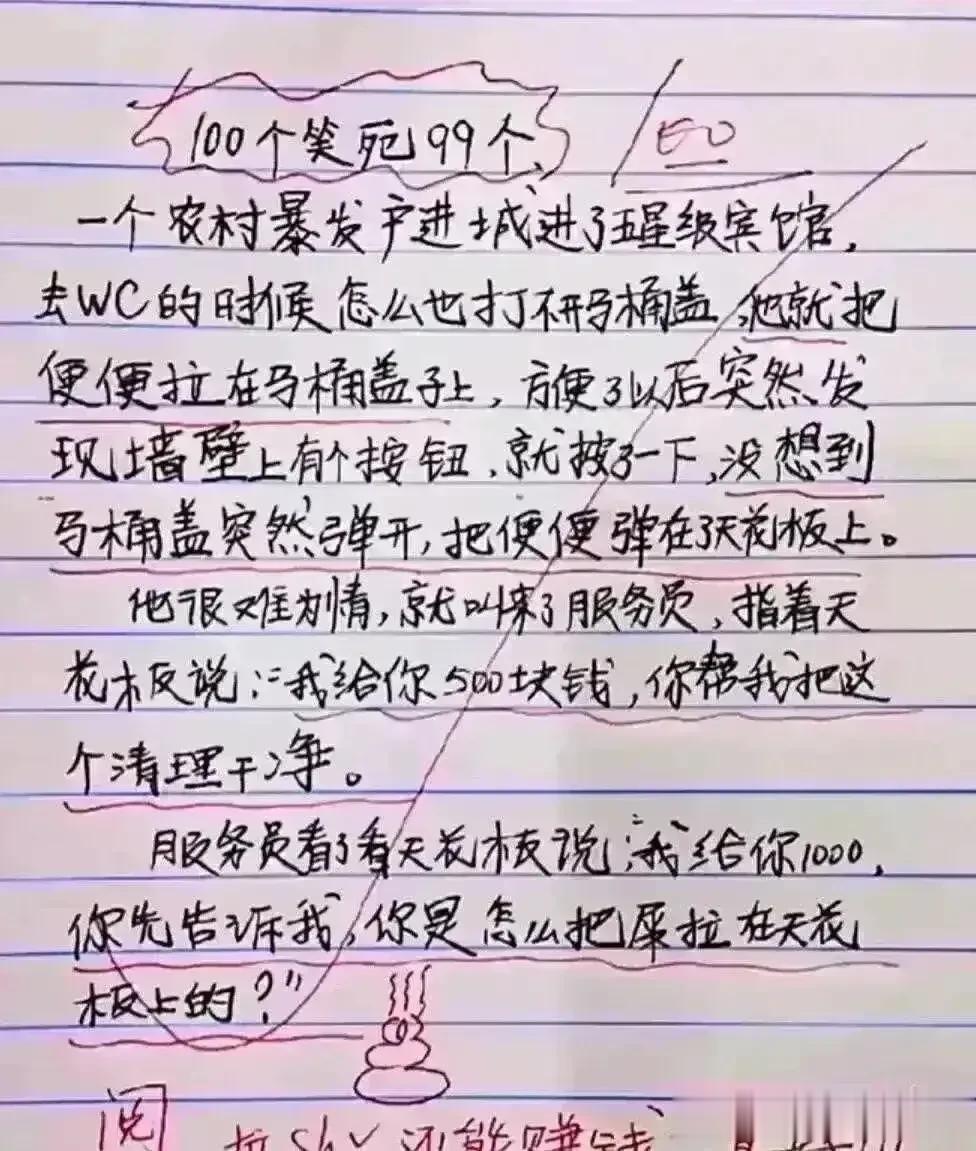 100个笑死99个、
一个农村暴发户进城进了五星级宾馆，
去WC的时候怎么也打不开马桶盖，他就把
便便拉在马桶盖子上，方便了以后突然发
现墙壁上有个按钮，就按了一下，没想到
马桶盖突然弹开，把便便弹在了天花板上。
他很难为情，就叫来了服务员，指着天
花板说："我给你500块钱，你帮我把这
个清理干净。
服务员看了看天花板说："我给你1000，
你先告诉我，你是怎么把屎拉在天花
板上的？"
阅
拉shv还能赚钱